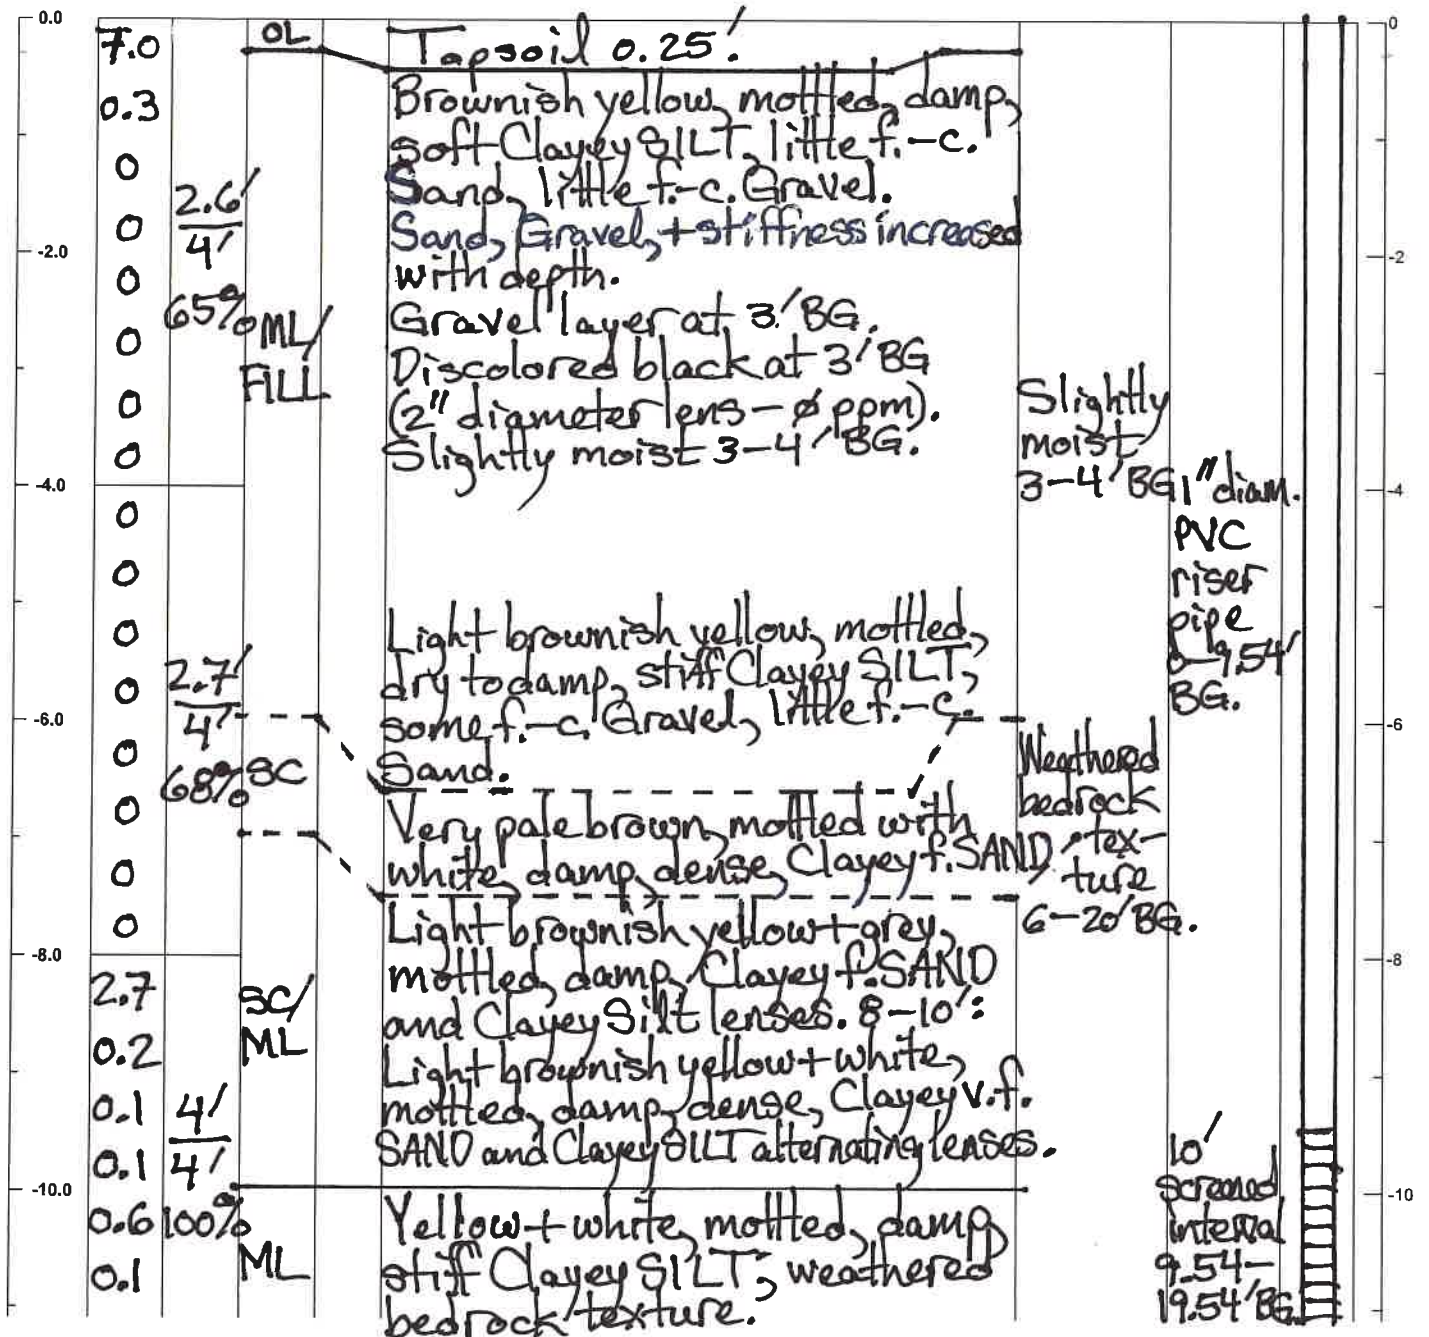 0.0
-2.0
-4.0
-6.0
-8.0
-10.0
7.0
0.3
0
0
0
0
0
0
0
0
0
0
0
0
0
0
2.7
0.2
0.1
0.1
0.6
0.1
2.6'
4'
65%
2.7'
4'
68%
4'
4'
100%
OL
ML/
FILL
SC
SC/
ML
ML
Topsoil 0.25'.
Brownish yellow, mottled, damp,
soft Clayey SILT, little f.-c.
Sand, little f.-c. Gravel.
Sand, Gravel, + stiffness increased
with depth.
Gravel layer at 3.'BG.
Discolored black at 3'BG
(2" diameter lens - ø ppm).
Slightly moist 3-4'BG.
Light brownish yellow, mottled,
dry to damp, stiff Clayey SILT,
some f.-c. Gravel, little f.-c.
Sand.
Very pale brown, mottled with
white, damp, dense, Clayey f. SAND.
Light brownish yellow + grey,
mottled, damp, Clayey f. SAND
and Clayey Silt lenses. 8-10':
Light brownish yellow + white,
mottled, damp, dense, Clayey v.f.
SAND and Clayey SILT alternating lenses.
Yellow + white, mottled, damp,
stiff Clayey SILT, weathered
bedrock texture.
Slightly
moist
3-4'BG
Weathered
bedrock
tex-
ture
6-20'BG.
1" diam.
PVC
riser
pipe
0-9.54'
BG.
10'
screened
interval
9.54-
19.54'BG.
0
-2
-4
-6
-8
-10